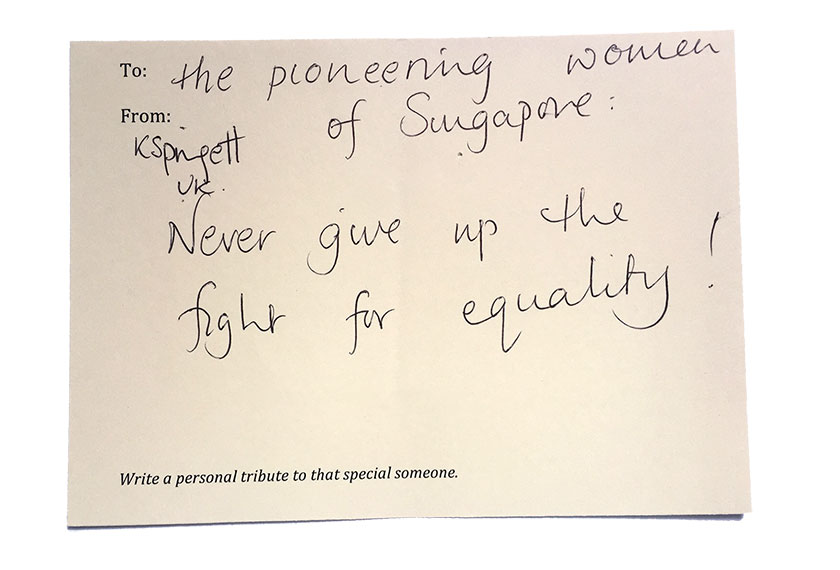 To: the pioneering women
of Singapore:
From:
KSpringett
UK.
Never give up the
fight for equality!
Write a personal tribute to that special someone.